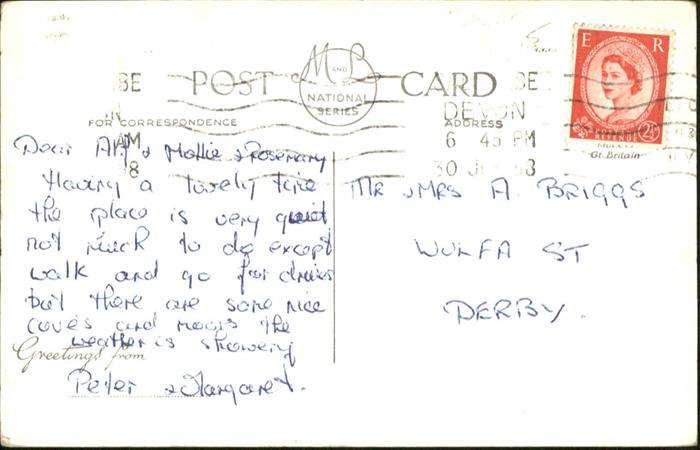 POST CARD
M AND L
NATIONAL
SERIES
FOR CORRESPONDENCE
ADDRESS
BE
DEVON
6 45 PM
AM
8
E R
2½
Gt. Britain
Dear Alf & Mollie & Rosemary
Having a lovely time
the place is very quiet
not much to do except
walk and go for drives
but there are some nice
coves and moors the
weather is showery
Greetings from
Peter & Margaret.
MR & MRS A BRIGGS
WULFA ST
DERBY.